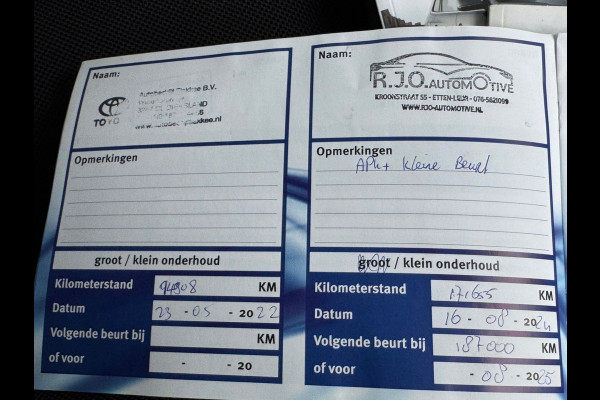 Naam:
Autobedrijf Bakkee B.V.
TOYO
Opmerkingen
groot / klein onderhoud
Kilometerstand 94908 KM
Datum 23 - 05 - 2022
Volgende beurt bij KM
of voor - - 20
Naam:
R.J.O. AUTOMOTIVE
KROONSTRAAT 55 - ETTEN-LEUR - 076-5621099
WWW.RJO-AUTOMOTIVE.NL
Opmerkingen
APK + Kleine Beurt
groot / klein onderhoud
Kilometerstand 171655 KM
Datum 16 - 08 - 2024
Volgende beurt bij 187000 KM
of voor - 08 - 2025